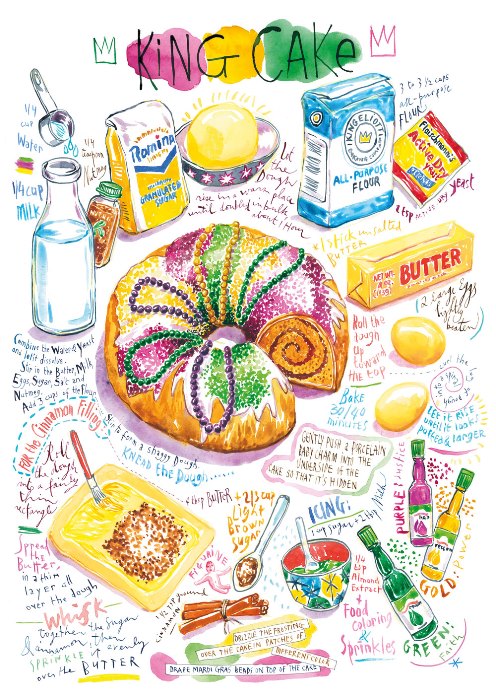 KiNG CAKe
1/4
cup
Water
1/4 cup
MiLK
1/4
teaspoon
Nutmeg
Domino
GRANULATED
SUGAR
Let
the
Dough
rise in a warm place
until doubled in bulk
about 1 Hour
KING ELIOTT
ALL-PURPOSE
FLOUR
3 to 3 1/2 cups
all-purpose
FLUR
Fleischmann's
Active Dry
YEAST
2 tsp active dry yeast
1 stick unsalted
BUTTER
BUTTER
(2 Large Eggs
lightly
beaten)
Roll the
tough
up
toward
the top
Bake
30/40
minutes
Let it RiSE
until it looks
puffed & larger
Combine the Water & Yeast
and let it dissolve.
Stir in the Butter, Milk,
Eggs, Sugar, Salt and
Nutmeg.
Add 3 cups of the Flour
Stir to form a shaggy Dough.
KNEAD the Dough......
FOR the Cinnamon Filling
Roll
the dough
into a fairly
thin
rectangle
Spread
the
Butter
in a thin
layer all
over the dough
Whisk
together the Sugar
& cinnamon then
SPRINKLE it evenly
over the BUTTER
BUTTER
+ 2/3 cup
Light
Brown
Sugar
FIGURINE
1 1/2 tsp ground
cinnamon
GENTLY PUSH A PORCELAIN
BABY CHARM INTO THE
UNDERSIDE OF THE
CAKE SO THAT IT'S HIDDEN
ICING:
1 cup Sugar + 2 tbsp Milk
1/4
tsp
Almond
Extract
+
Food
Coloring
&
Sprinkles
PURPLE Justice
GOLD: Power
GREEN:
Faith
DRIZZLE THE FROSTING
OVER THE CAKE IN PATCHES OF
DIFFERENT COLOR
DRAPE MARDI GRAS BEADS ON TOP OF THE CAKE